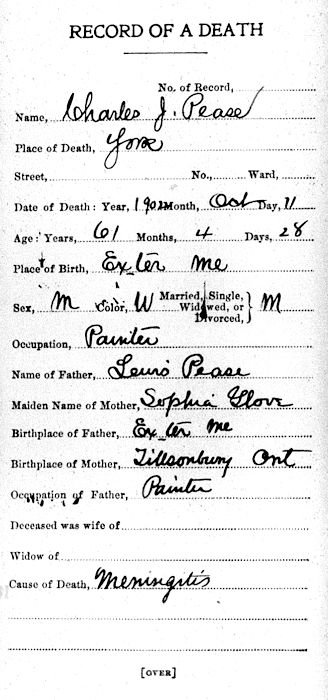 RECORD OF A DEATH
No. of Record,
Name, Charles J. Pease
Place of Death, York
Street, No., Ward,
Date of Death: Year, 1902 Month, Oct Day, 11
Age: Years, 61 Months, 4 Days, 28
Place of Birth, Ex_ter Me
Sex, M Color, W Married, Single, Widowed, or Divorced, } M
Occupation, Painter
Name of Father, Lewis Pease
Maiden Name of Mother, Sophia Glove
Birthplace of Father, Ex_ter Me
Birthplace of Mother, Tillsonburg Ont
Occupation of Father, Painter
Deceased was wife of
Widow of
Cause of Death, Meningitis
[OVER]